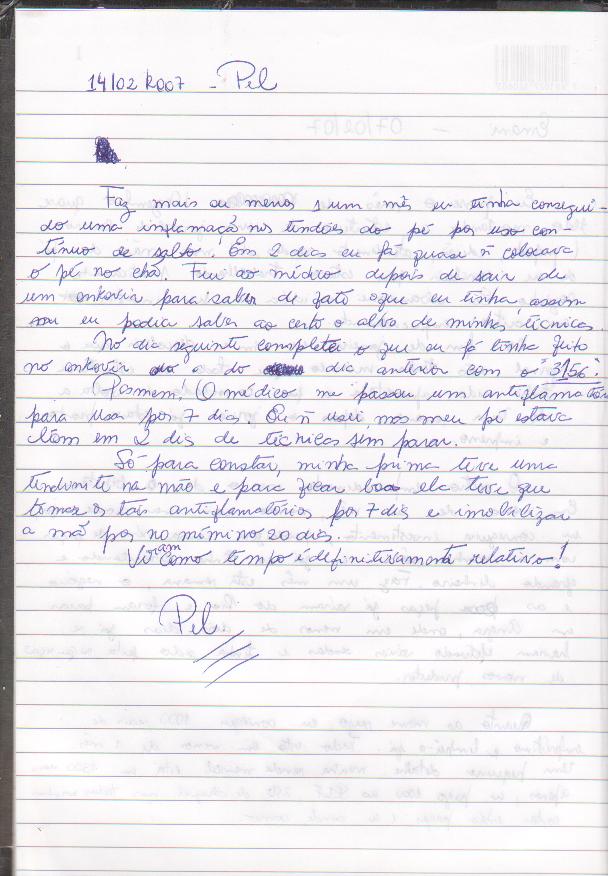 14/02/2007 - Pel
Faz mais ou menos 1 um mês eu tinha consegui-
do uma inflamaçã nos tendões do pé por uso con-
tínuo de salto! Em 2 dias eu já quase ñ colocava
o pé no chão. Fui ao médico depois de sair de
um onkovir para saber de fato oque eu tinha, assim
eu podia saber ao certo o alvo de minhas técnicas
No dia seguinte completei o que eu já tinha feito
no onkovir do dia anterior com o "3156".
(Pasmem! (O médico me passou um antiflamatório
para usar por 7 dias. Eu ñ usei, mas meu pé estava
ótimo em 2 dis de técnicas sem parar.
Só para constar, minha prima teve uma
tendinite na mão e para ficar boa ela teve que
tomar os tais antiflamatórios por 7 dis e imobilizar
a mão por no mímino 20 dias.
Viram como tempo é definitivamente relativo!
Pel